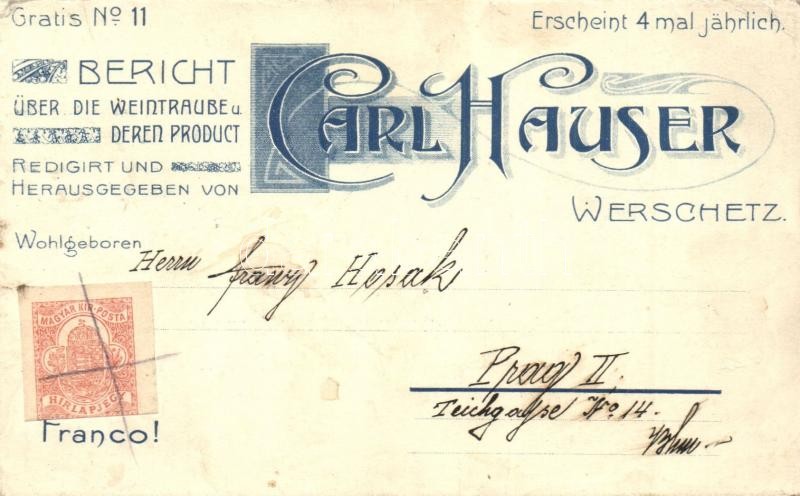 Gratis Nº 11
Erscheint 4 mal jährlich.
BERICHT
ÜBER DIE WEINTRAUBE u.
DEREN PRODUCT
REDIGIRT UND
HERAUSGEGEBEN VON
CARL HAUSER
WERSCHETZ.
Wohlgeboren
Herrn Franz Hosak
MAGYAR KIR. POSTA
HIRLAPJEGY
Franco!
Prag II.
Teichgasse Nº 14.